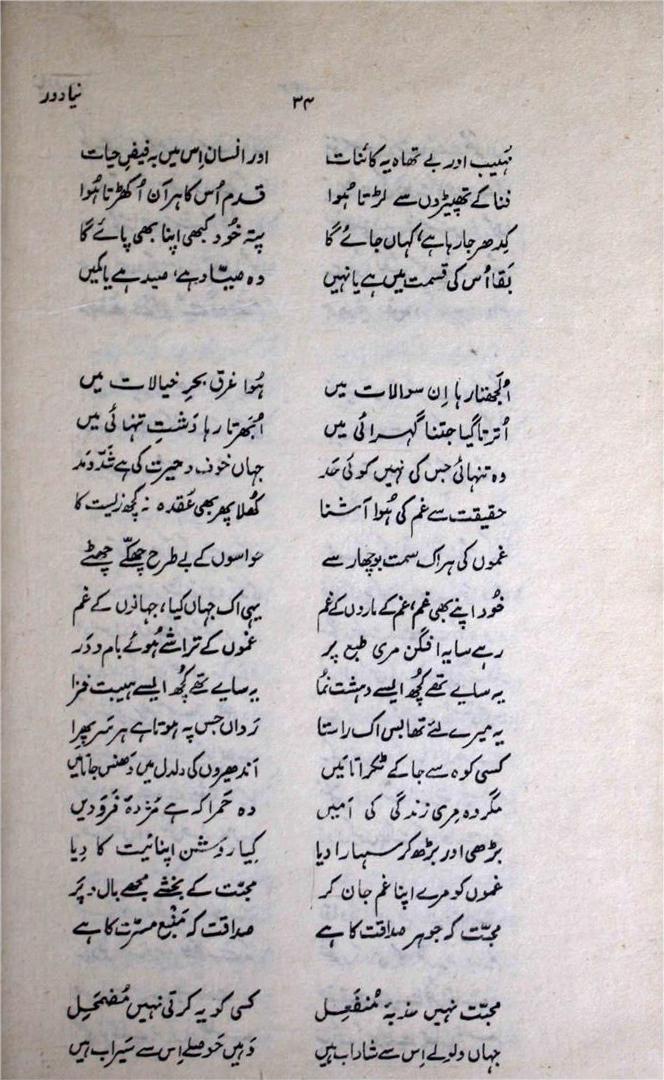 نیا دور
۳۴
مُہیب اور بے تھاہ یہ کائنات اور انسان اِس میں بہ فیضِ حیات
فنا کے تھپیڑوں سے لڑتا ہُوا قدم اُس کا ہر آن اُکھڑتا ہُوا
کِدھر جا رہا ہے، کہاں جائے گا پتہ خُود کبھی اپنا بھی پائے گا
بقا اُس کی قسمت میں ہے یا نہیں وہ صیّاد ہے، صید ہے یا کمیں
اُلجھتا رہا اِن سوالات میں ہُوا غرق بحرِ خیالات میں
اُترتا گیا جتنا گہرائی میں اُبھرتا رہا دَشتِ تنہائی میں
وہ تنہائی جس کی نہیں کوئی حَد جہاں خوف و حیرت کی ہے شَدّ و مَد
حقیقت سے غم کی ہُوا آشنا کھُلا پھر بھی عُقدہ نہ کچھ زیست کا
غموں کی ہر اک سمت بوچھار سے حواسوں کے بے طرح چھکّے چھٹے
خُود اپنے بھی غم، غم کے ماروں کے غم یہی اک جہاں کیا، جہانوں کے غم
رہے سایہ افگن مری طبع پر غموں کے تراشے ہُوئے بام و دَر
یہ سایے تھے کُچھ ایسے دہشت نُما یہ سایے تھے کُچھ ایسے ہیبت فزا
یہ میرے لئے تھا بس اک راستا رَواں جس پہ ہوتا ہے ہر سَر پھرا
کسی کوہ سے جا کے ٹکرائیں اَندھیروں کی دلدل میں دَھنس جائیں
مگر وہ مِری زندگی کی اَمیں وہ حَمرا کہ ہے مُژدۂ فَرَوَدیں
بڑھی اور بڑھ کر سہارا دیا کِیا رَوشن اپنائیت کا دِیا
غموں کو مرے اپنا غم جان کر محبّت کے بخشے مجھے بال و پَر
محبّت کہ جوہر صداقت کا ہے صداقت کہ مَنبع مسرّت کا ہے
محبّت نہیں جذبۂ مُنفَعِل کسی کو یہ کرتی نہیں مُضمَحِل
جہاں ولولے اِس سے شاداب ہیں وَہیں حَوصلے اِس سے سَیراب ہیں